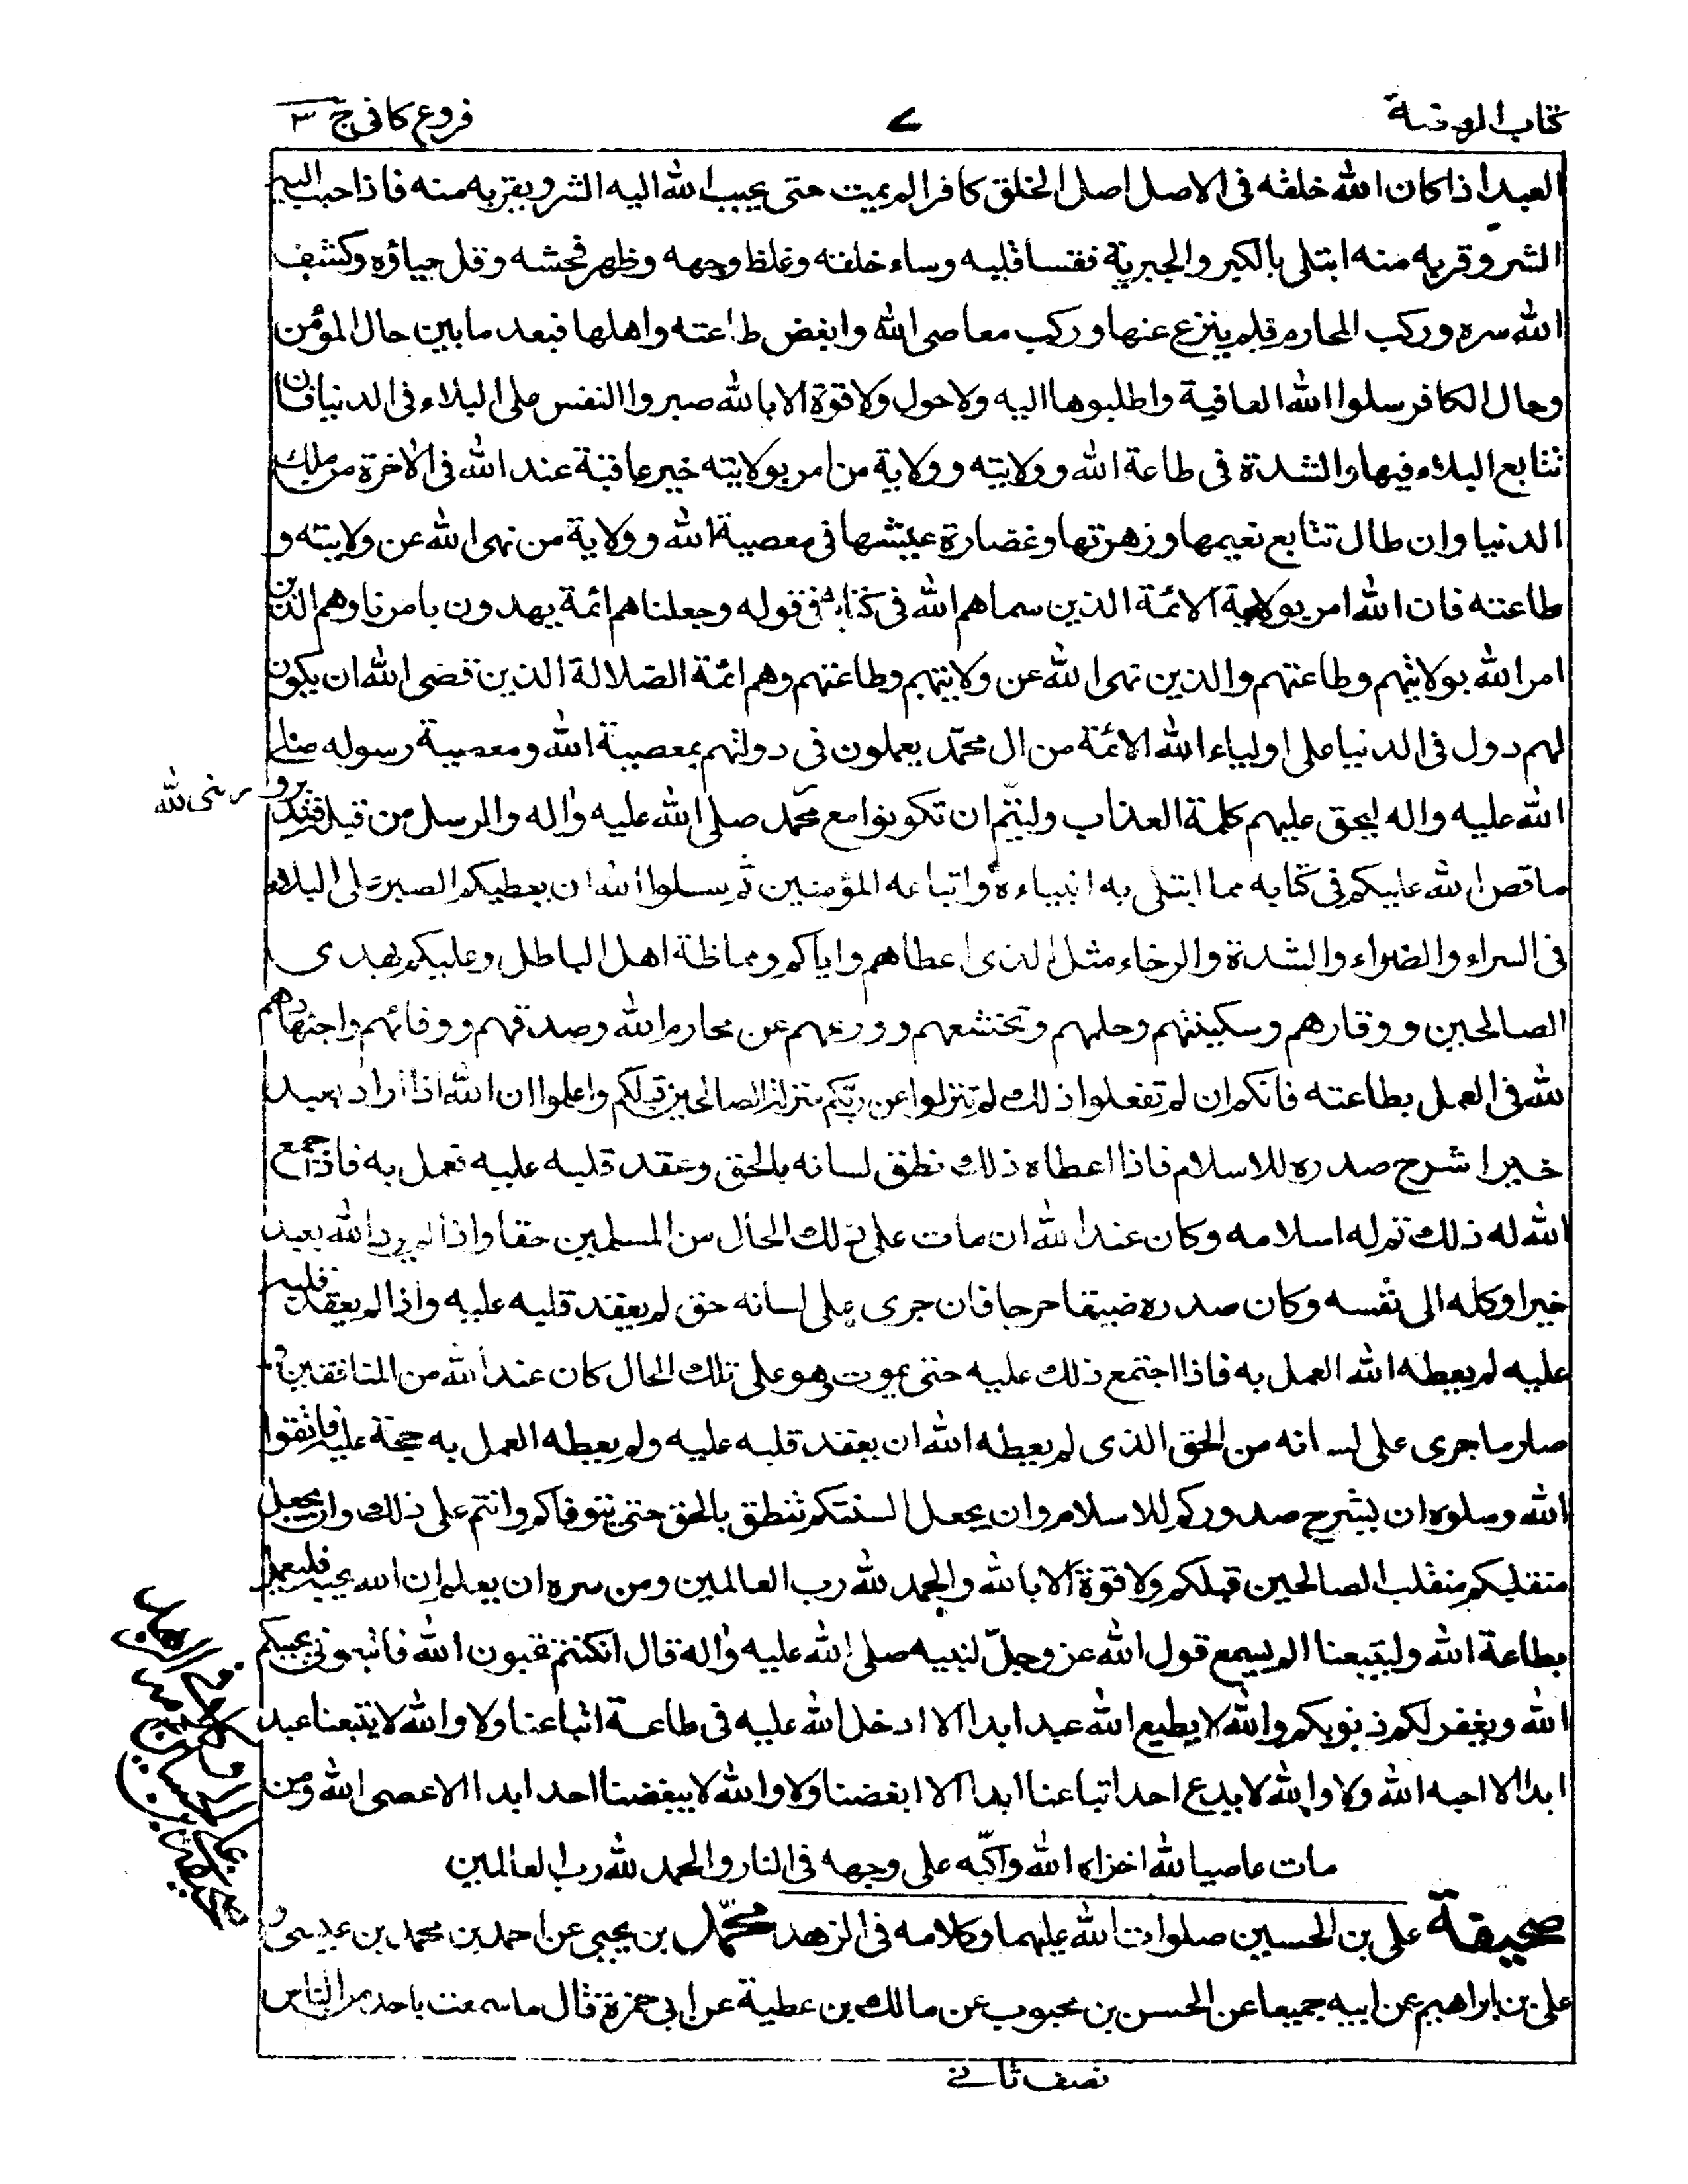 كتاب الروضة
٧
فروع كافى ج ٣
العبد اذا كان الله خلقه فى الاصل اصل الخلق كافرا لم يمت حتى يحبب الله اليه الشر و يقربه منه فاذا حبب اليه
الشر و قربه منه ابتلى بالكبر والجبرية فقسا قلبه وساء خلقه وغلظ وجهه وظهر فحشه وقل حياؤه وكشف
الله سره وركب المحارم فلم ينزع عنها وركب معاصى الله وابغض طاعته واهلها فبعد ما بين حال المؤمن
وحال الكافر سلوا الله العافية واطلبوها اليه ولا حول ولا قوة الا بالله صبروا النفس على البلاء فى الدنيا فان
تتابع البلاء فيها والشدة فى طاعة الله وولايته وولاية من امر بولايته خير عاقبة عند الله فى الآخرة من ملك
الدنيا وان طال تتابع نعيمها وزهرتها وغضارة عيشها فى معصية الله وولاية من نهى الله عن ولايته و
طاعته فان الله امر بولاية الائمة الذين سماهم الله فى كتابه فى قوله وجعلناهم ائمة يهدون بامرنا وهم الذين
امر الله بولايتهم وطاعتهم والذين نهى الله عن ولايتهم وطاعتهم وهم ائمة الضلالة الذين قضى الله ان يكون
لهم دول فى الدنيا على اولياء الله الائمة من ال محمد يعملون فى دولتهم بمعصية الله ومعصية رسوله صلى
الله عليه واله ليحق عليهم كلمة العذاب وليتم ان تكونوا مع محمد صلى الله عليه واله والرسل من قبله فتدبروا
ما قص الله عليكم فى كتابه مما ابتلى به انبياءه واتباعه المؤمنين ثم سلوا الله ان يعطيكم الصبر على البلاء
فى السراء والضراء والشدة والرخاء مثل الذى اعطاهم واياكم ومماظة اهل الباطل وعليكم بهدى
الصالحين ووقارهم وسكينتهم وحلمهم وتخشعهم وورعهم عن محارم الله وصدقهم ووفائهم واجتهادهم
لله فى العمل بطاعته فانكم ان لم تفعلوا ذلك لم تنزلوا عن ربكم منزلة الصالحين قبلكم واعلموا ان الله اذا اراد بعبد
خيرا شرح صدره للاسلام فاذا اعطاه ذلك نطق لسانه بالحق وعقد قلبه عليه فعمل به فاذا جمع
الله له ذلك تم له اسلامه وكان عند الله ان مات على ذلك الحال من المسلمين حقا واذا لم يرد الله بعبد
خيرا وكله الى نفسه وكان صدره ضيقا حرجا فان جرى على لسانه حق لم يعقد قلبه عليه واذا لم يعقد قلبه
عليه لم يعطه الله العمل به فاذا اجتمع ذلك عليه حتى يموت وهو على تلك الحال كان عند الله من المنافقين و
صار ما جرى على لسانه من الحق الذى لم يعطه الله ان يعقد قلبه عليه ولم يعطه العمل به حجة عليه فاتقوا
الله وسلوه ان يشرح صدوركم للاسلام وان يجعل السنتكم تنطق بالحق حتى يتوفاكم وانتم على ذلك وان يجعل
منقلبكم منقلب الصالحين قبلكم ولا قوة الا بالله والحمد لله رب العالمين ومن سره ان يعلم ان الله يحبه فليعمل
بطاعة الله وليتبعنا الم يسمع قول الله عز وجل لنبيه صلى الله عليه واله قال ان كنتم تحبون الله فاتبعونى يحببكم
الله ويغفر لكم ذنوبكم والله لا يطيع الله عبد ابدا الا ادخل الله عليه فى طاعته اتباعنا ولا والله لا يتبعنا عبد
ابدا الا احبه الله ولا والله لا يدع احد اتباعنا ابدا الا ابغضنا ولا والله لا يبغضنا احد ابدا الا عصى الله ومن
مات عاصيا لله اخزاه الله واكبه على وجهه فى النار والحمد لله رب العالمين
صحيفة على بن الحسين صلوات الله عليهما وكلامه فى الزهد محمد بن يحيى عن احمد بن محمد بن عيسى و
على بن ابراهيم عن ابيه جميعا عن الحسن بن محبوب عن مالك بن عطية عن ابى حمزة قال ما سمعت باحد من الناس
نصف ثانى